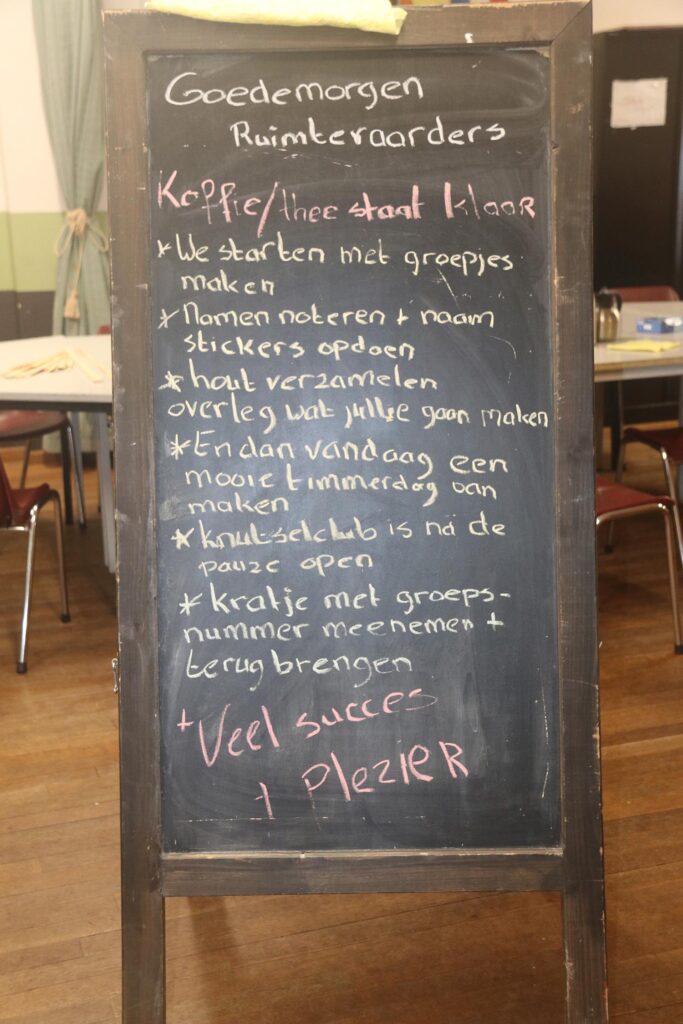 Goedemorgen
Ruimtevaarders
Koffie/thee staat klaar
* We starten met groepjes
maken
* Namen noteren + naam
stickers opdoen
* hout verzamelen
overleg wat jullie gaan maken
* En dan vandaag een
mooie timmerdag van
maken
* knutselclub is na de
pauze open
* kratje met groeps-
nummer meenemen +
terug brengen
+ Veel succes
+ Plezier